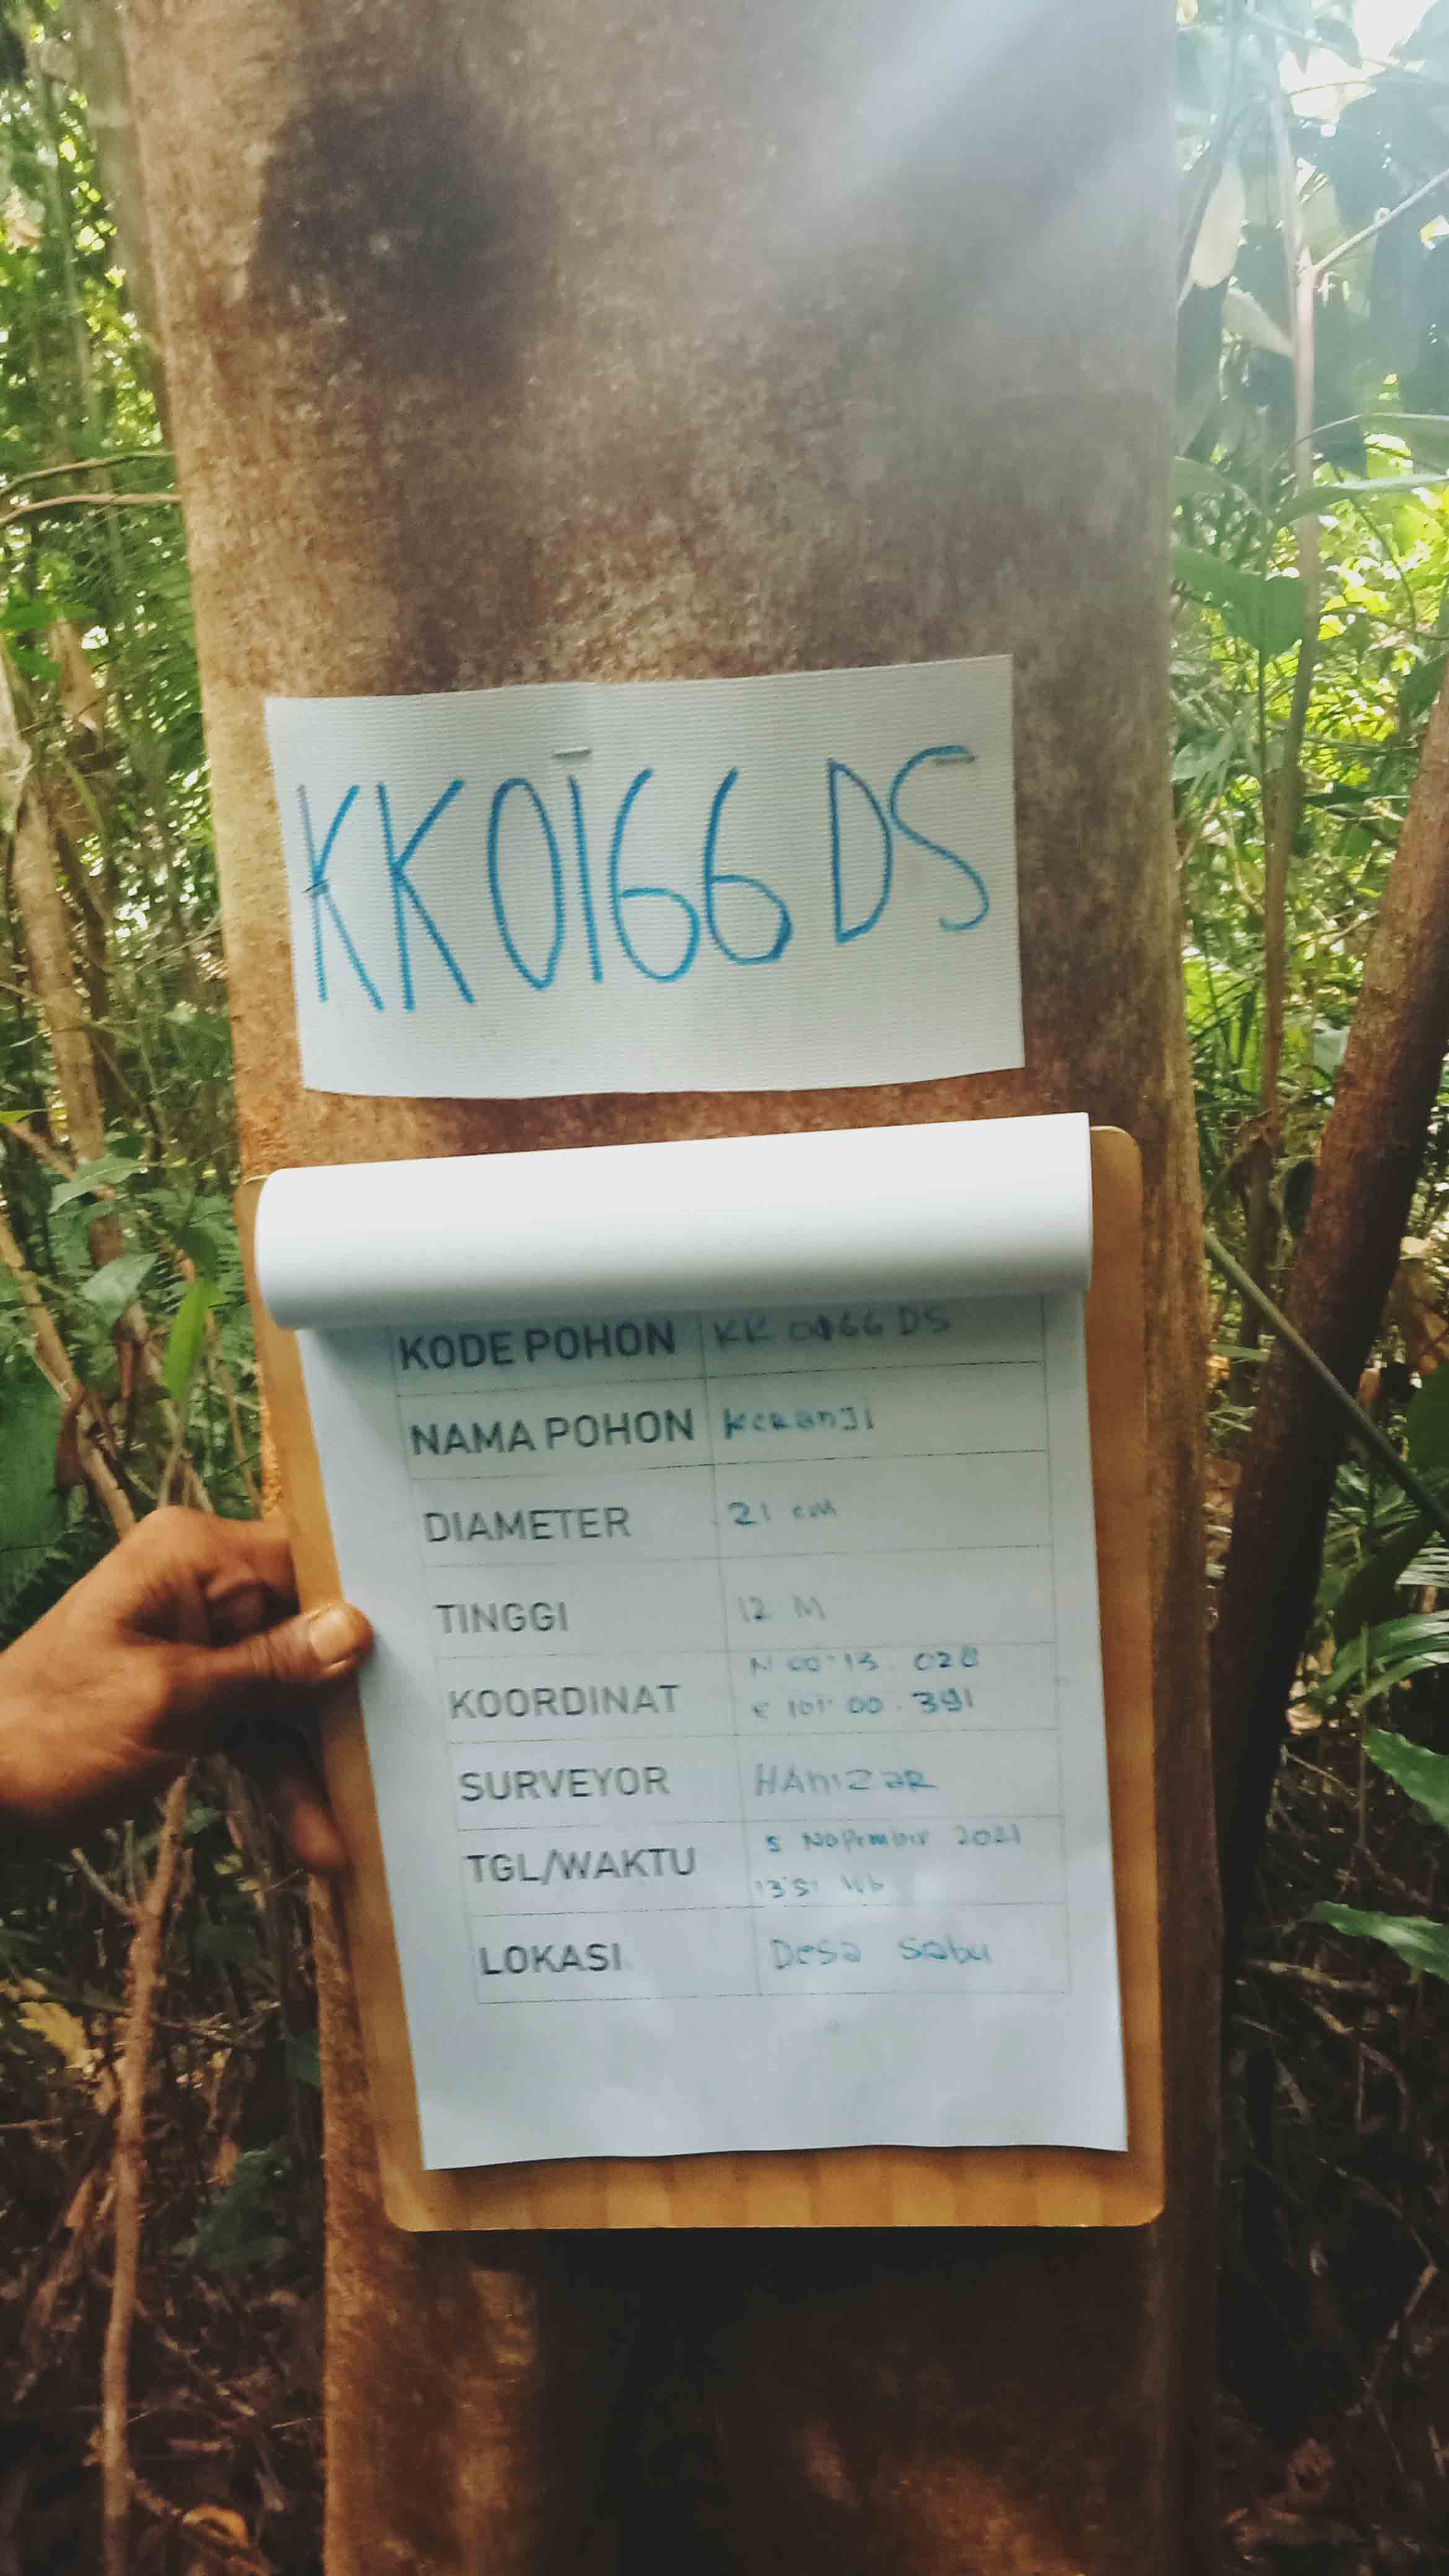 KK0166 DS
KODE POHON KK 0166 DS
NAMA POHON Keranji
DIAMETER 21 cm
TINGGI 12 M
KOORDINAT N 00° 15. 028
E 101° 00. 391
SURVEYOR HAnizaR
TGL/WAKTU 5 Nopember 2021
13:51 Wib
LOKASI Desa Sabu